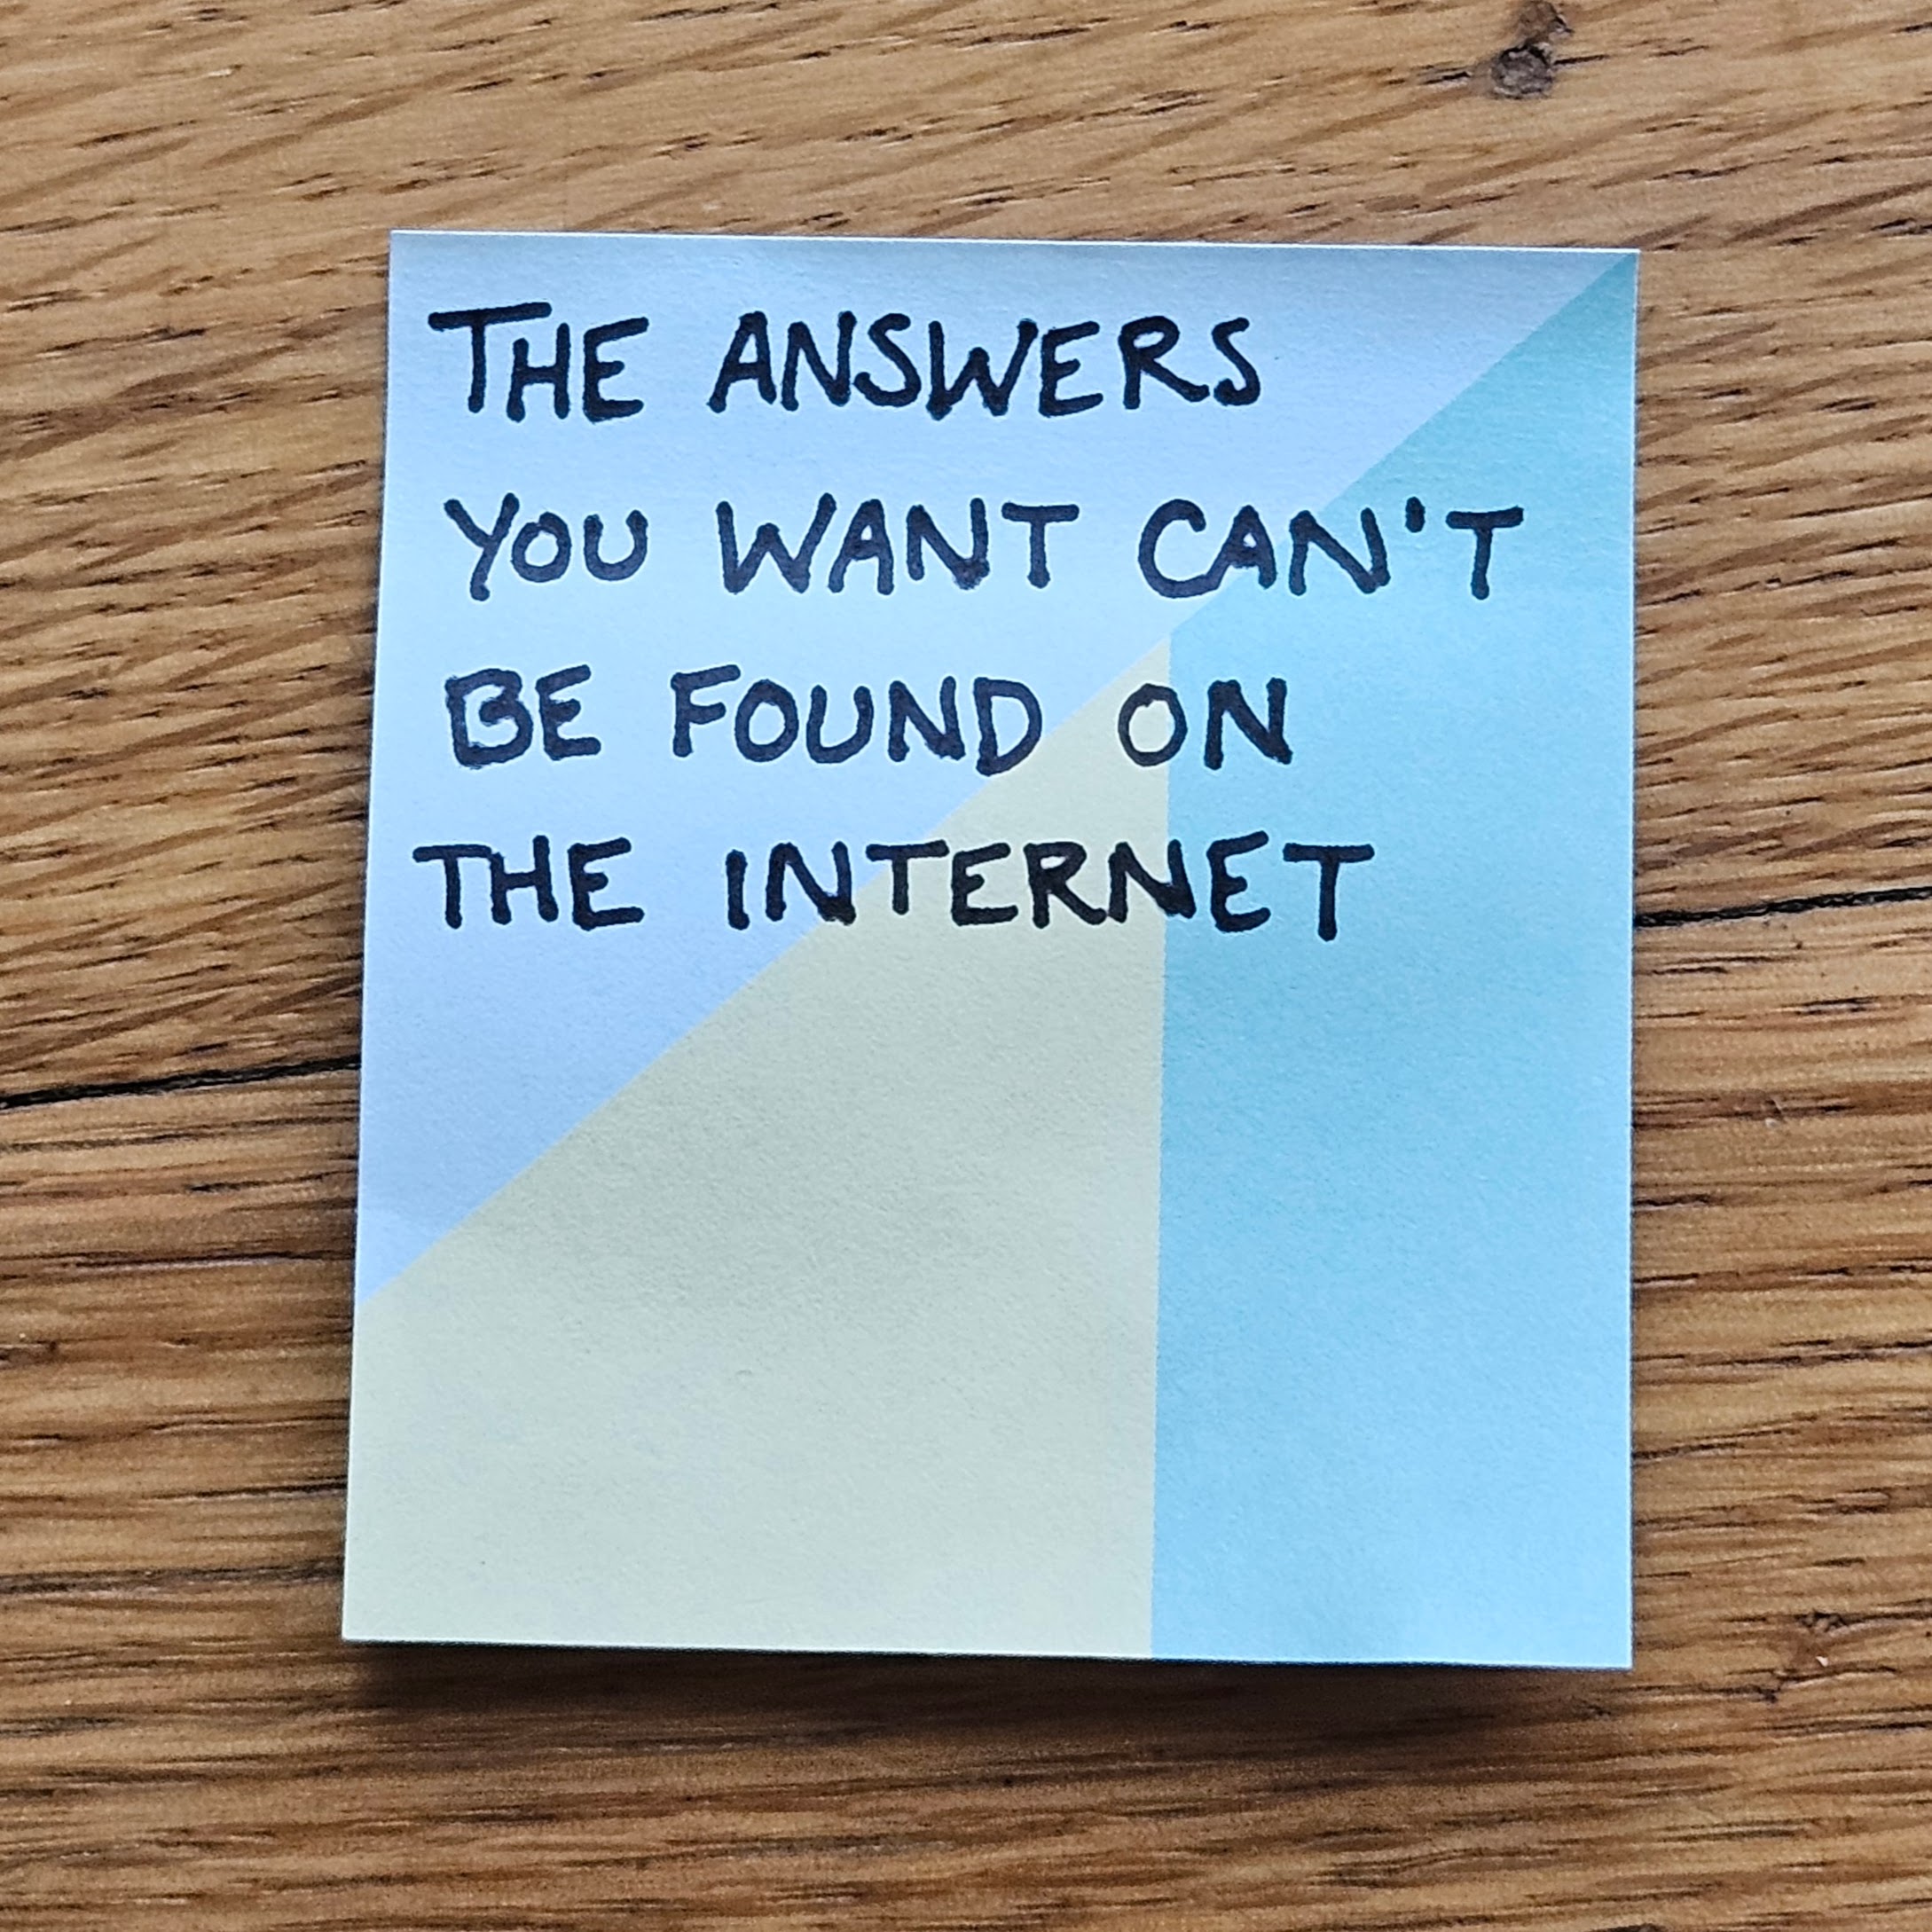 THE ANSWERS
YOU WANT CAN'T
BE FOUND ON
THE INTERNET